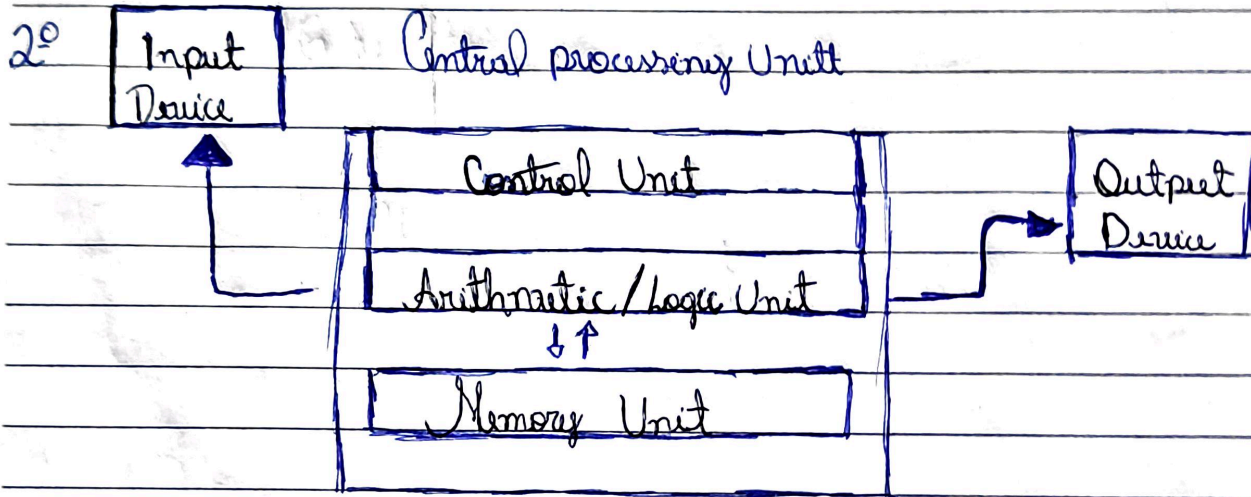 2º
Input
Device
Central processing Unitt
Control Unit
Arithmetic/Logic Unit
Memory Unit
Output
Device